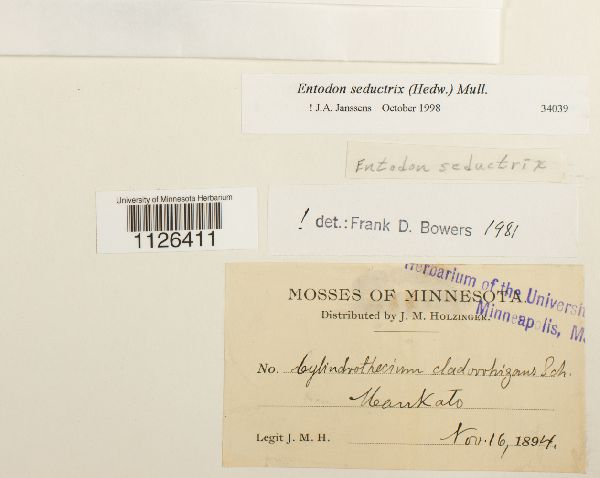 Entodon seductrix (Hedw.) Mull.
! J.A. Janssens October 1998 34039
Entodon seductrix
University of Minnesota Herbarium
1126411
! det.: Frank D. Bowers 1981
Herbarium of the Universit
Minneapolis, M
MOSSES OF MINNESOTA.
Distributed by J. M. HOLZINGER.
No. Cylindrothecium cladorrhizans Sch.
Mankato
Legit J. M. H. Nov. 16, 1894.